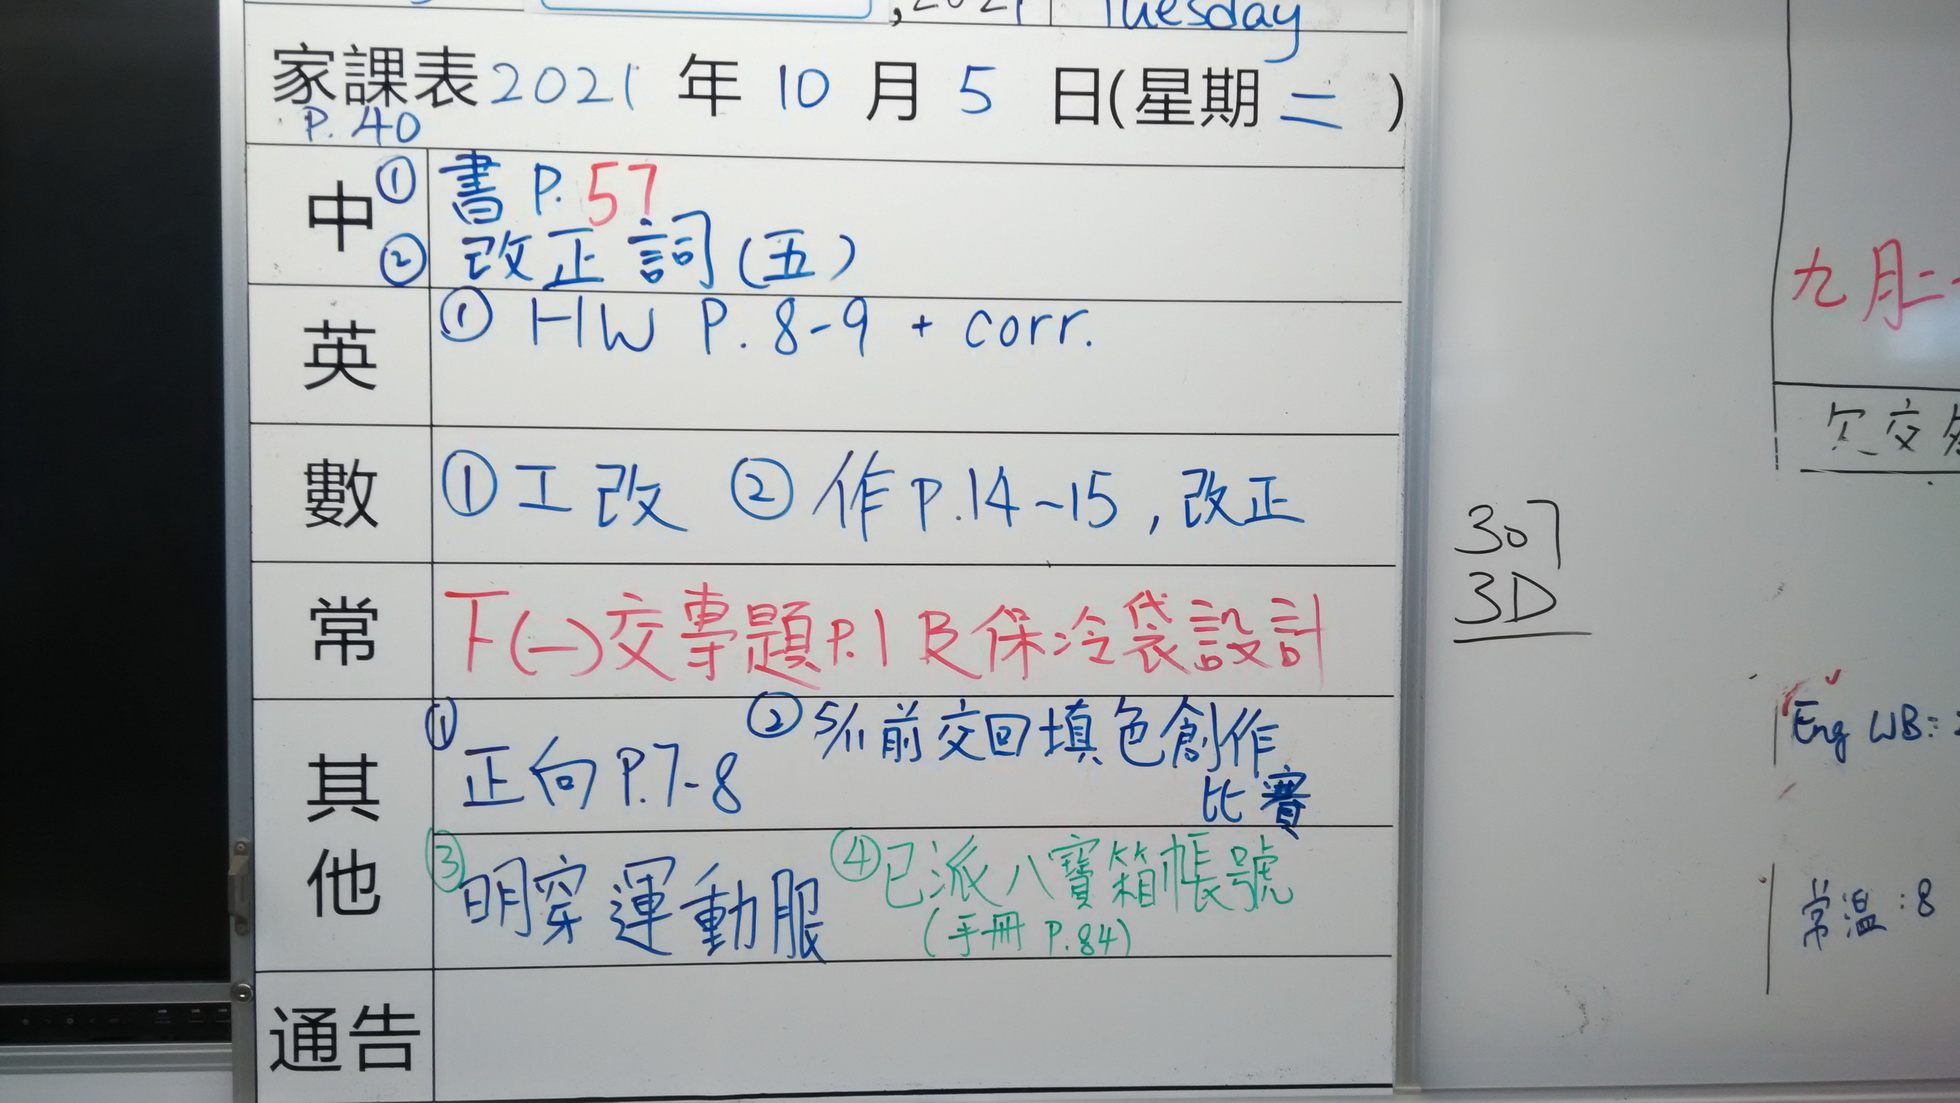 , 2021 Tuesday
家課表 2021 年 10 月 5 日(星期 二 )
P. 40
中 ① 書 P. 57
② 改正 詞 (五)
英 ① HW P. 8-9 + corr.
數 ① 工改 ② 作 P.14-15 , 改正
常 下(一)交專題P.1 及保冷袋設計
其他 ① 正向 P.7-8 ② 5/11前交回填色創作
比賽
③ 明穿運動服 ④ 已派八寶箱帳號
(手冊 P.84)
通告
307
3D
九月二
欠交
Eng WB:
常溫:8